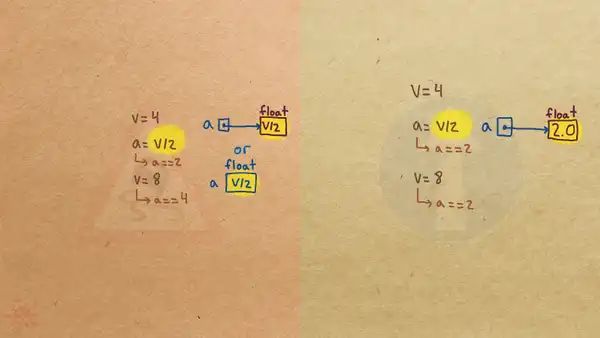 V=4
a= V/2
↳ a==2
V= 8
↳ a==4
float
a V/2
or
float
a V/2
V=4
a= V/2
↳ a==2
V= 8
↳ a==2
float
a 2.0